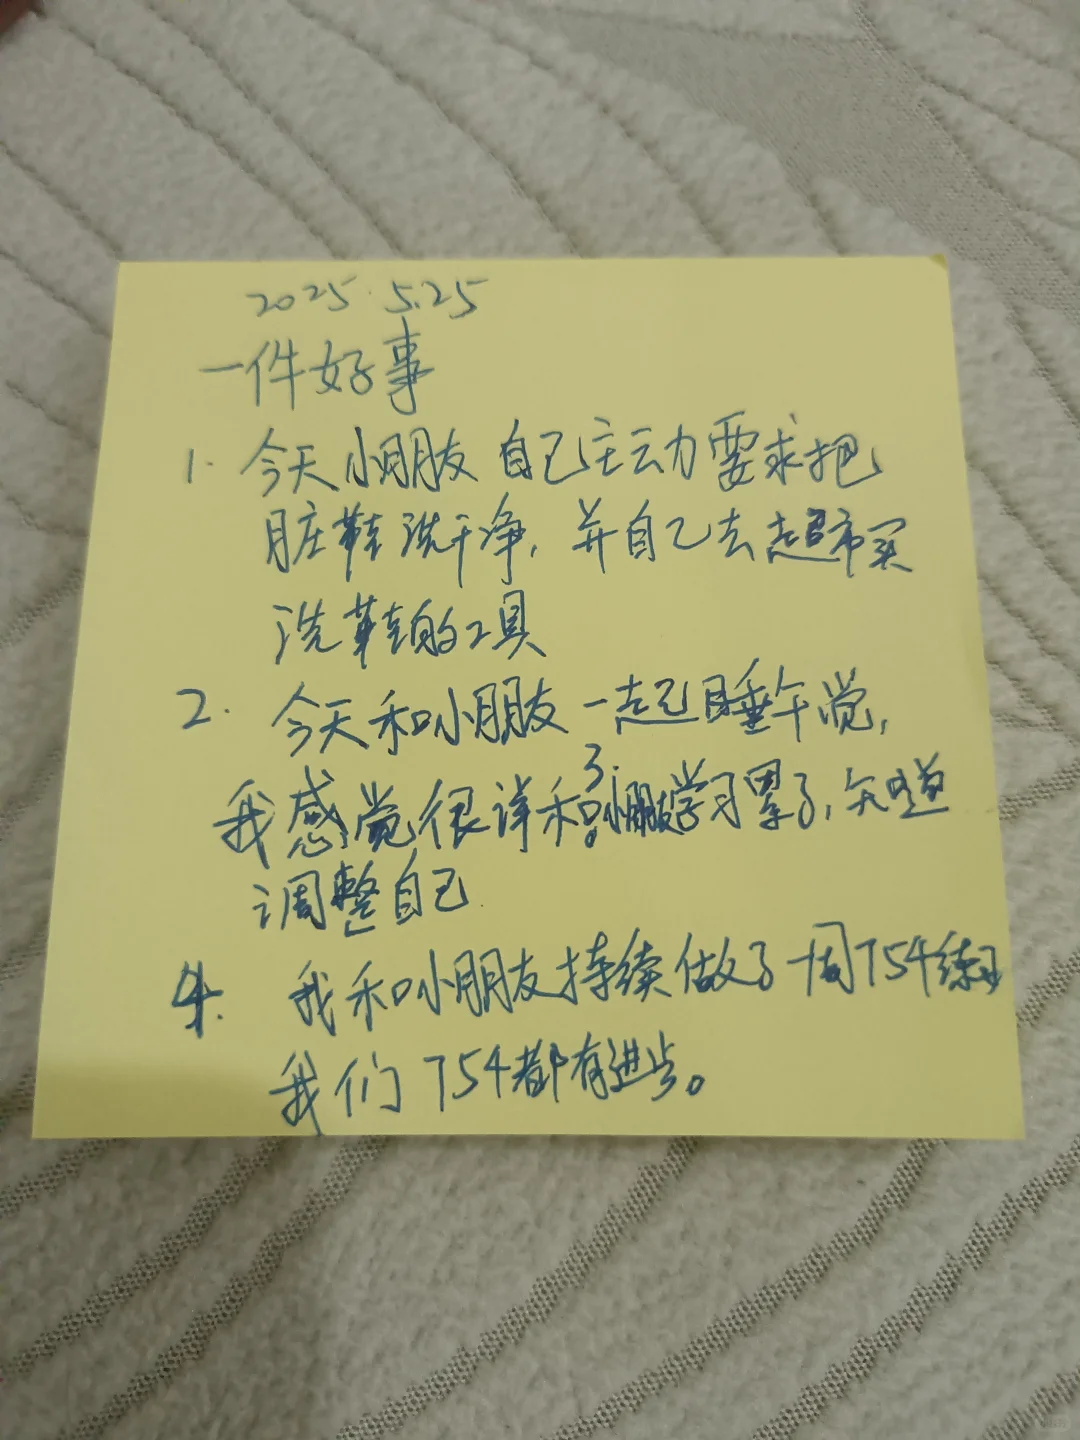 2025.5.25
一件好事
1. 今天小朋友自己主动要求把
脏鞋洗干净,并自己去超市买
洗鞋的工具
2. 今天和小朋友一起睡午觉,
我感觉很详和。3.小朋友学习累了,知道
调整自己
4. 我和小朋友持续做了一周754练习
我们754都有进步。